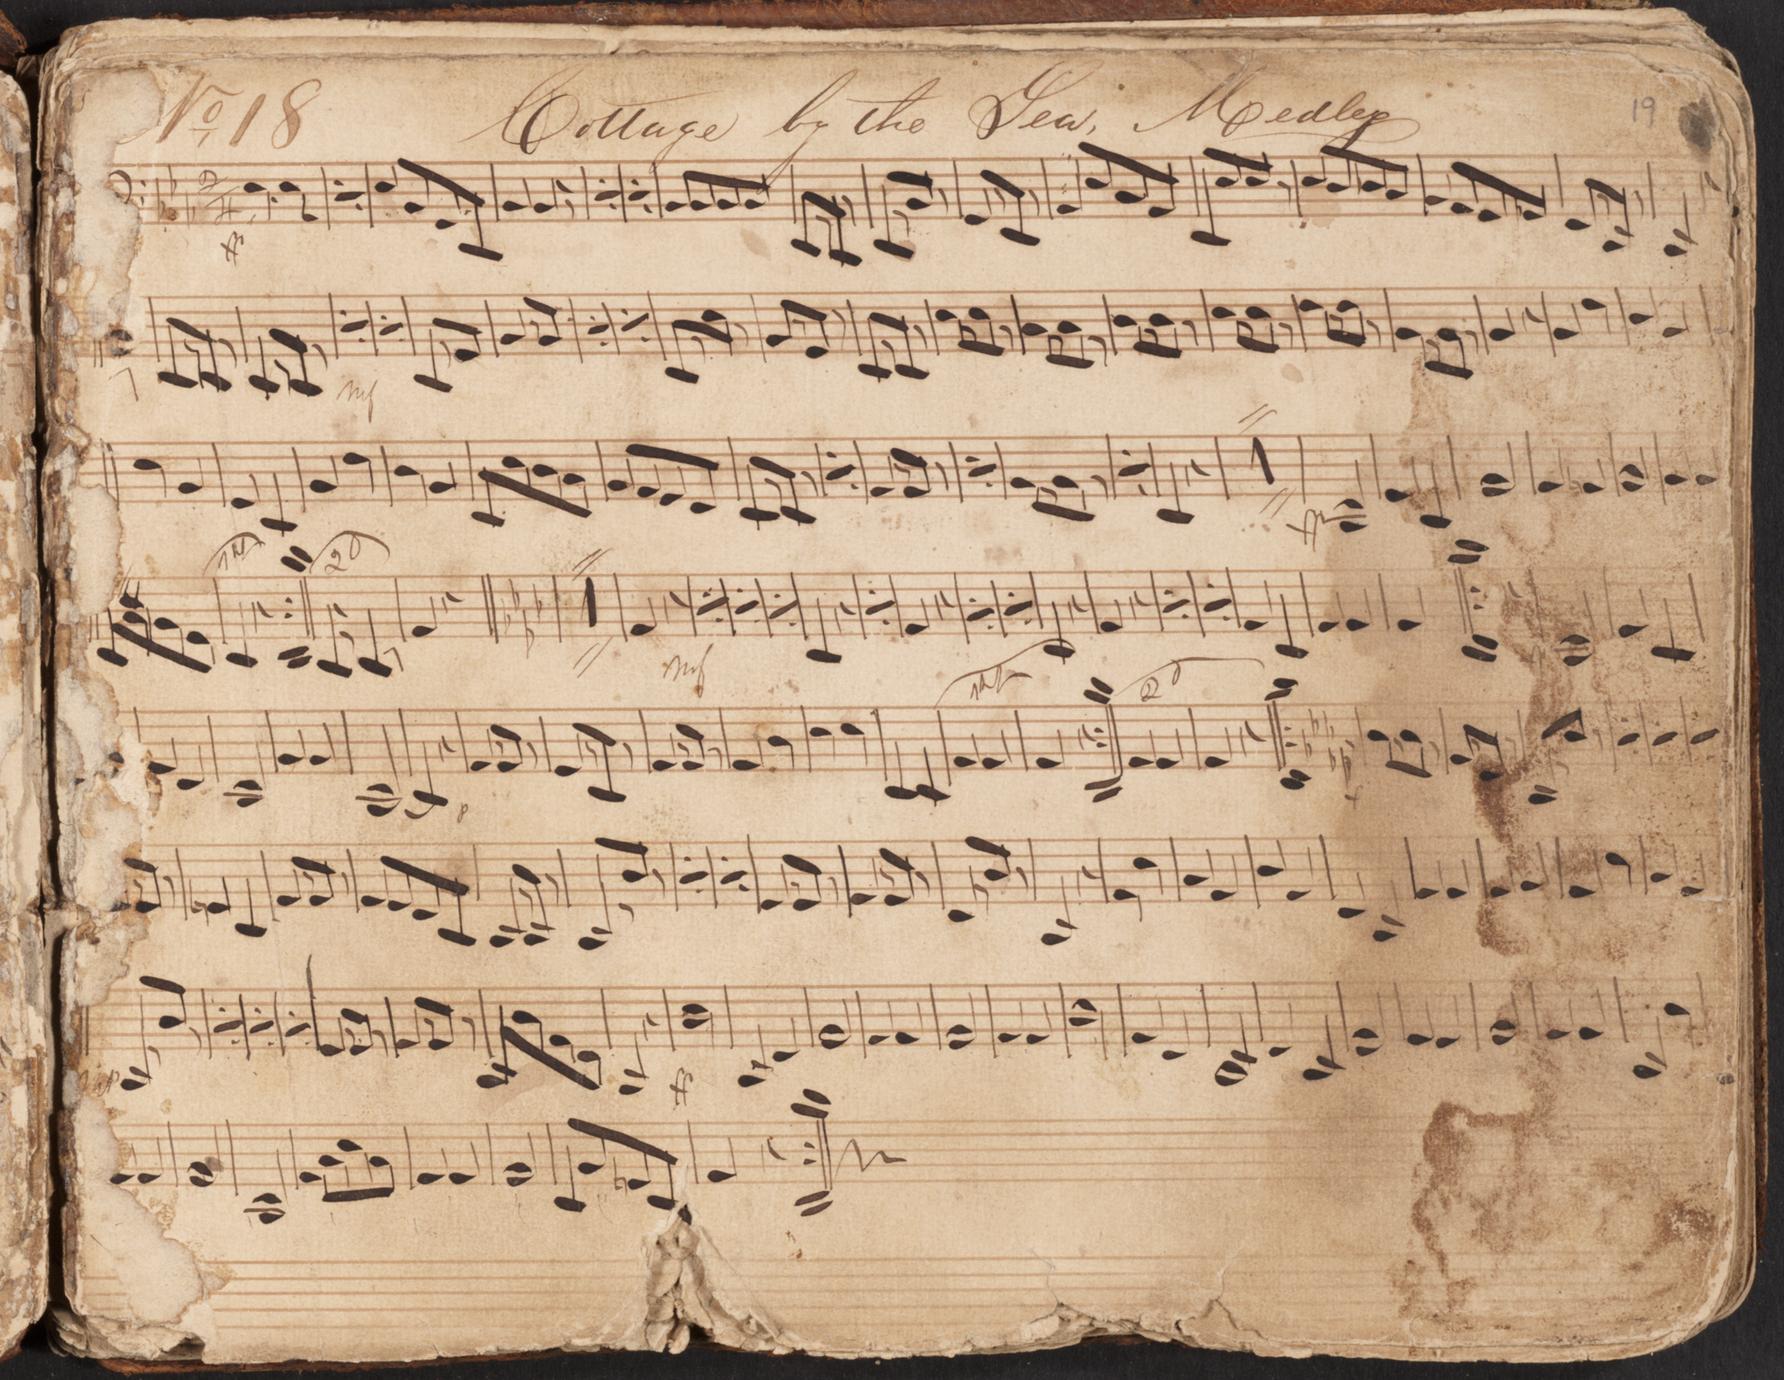 No 18 Cottage by the Sea, Medley 19
ff
mf
1st 2d
mf
1st 2d
ff